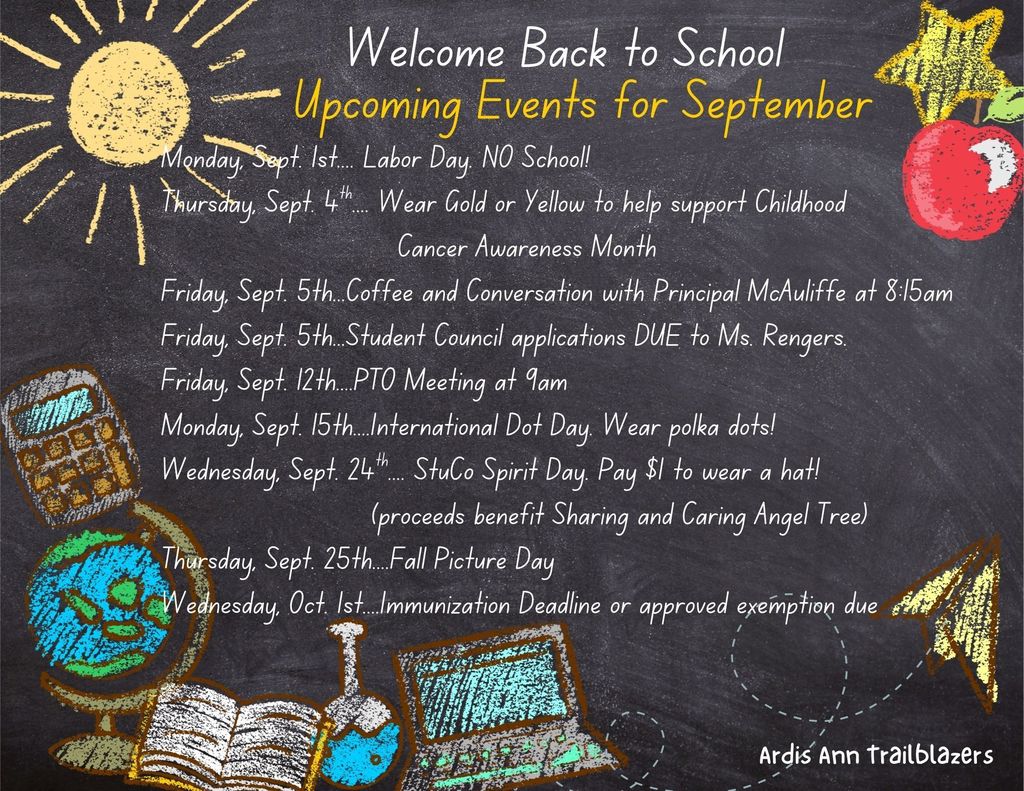 Welcome Back to School
Upcoming Events for September
Monday, Sept. 1st.... Labor Day. NO School!
Thursday, Sept. 4th.... Wear Gold or Yellow to help support Childhood
Cancer Awareness Month
Friday, Sept. 5th...Coffee and Conversation with Principal McAuliffe at 8:15am
Friday, Sept. 5th...Student Council applications DUE to Ms. Rengers.
Friday, Sept. 12th....PTO Meeting at 9am
Monday, Sept. 15th....International Dot Day. Wear polka dots!
Wednesday, Sept. 24th.... StuCo Spirit Day. Pay $1 to wear a hat!
(proceeds benefit Sharing and Caring Angel Tree)
Thursday, Sept. 25th....Fall Picture Day
Wednesday, Oct. 1st....Immunization Deadline or approved exemption due
Ardis Ann Trailblazers